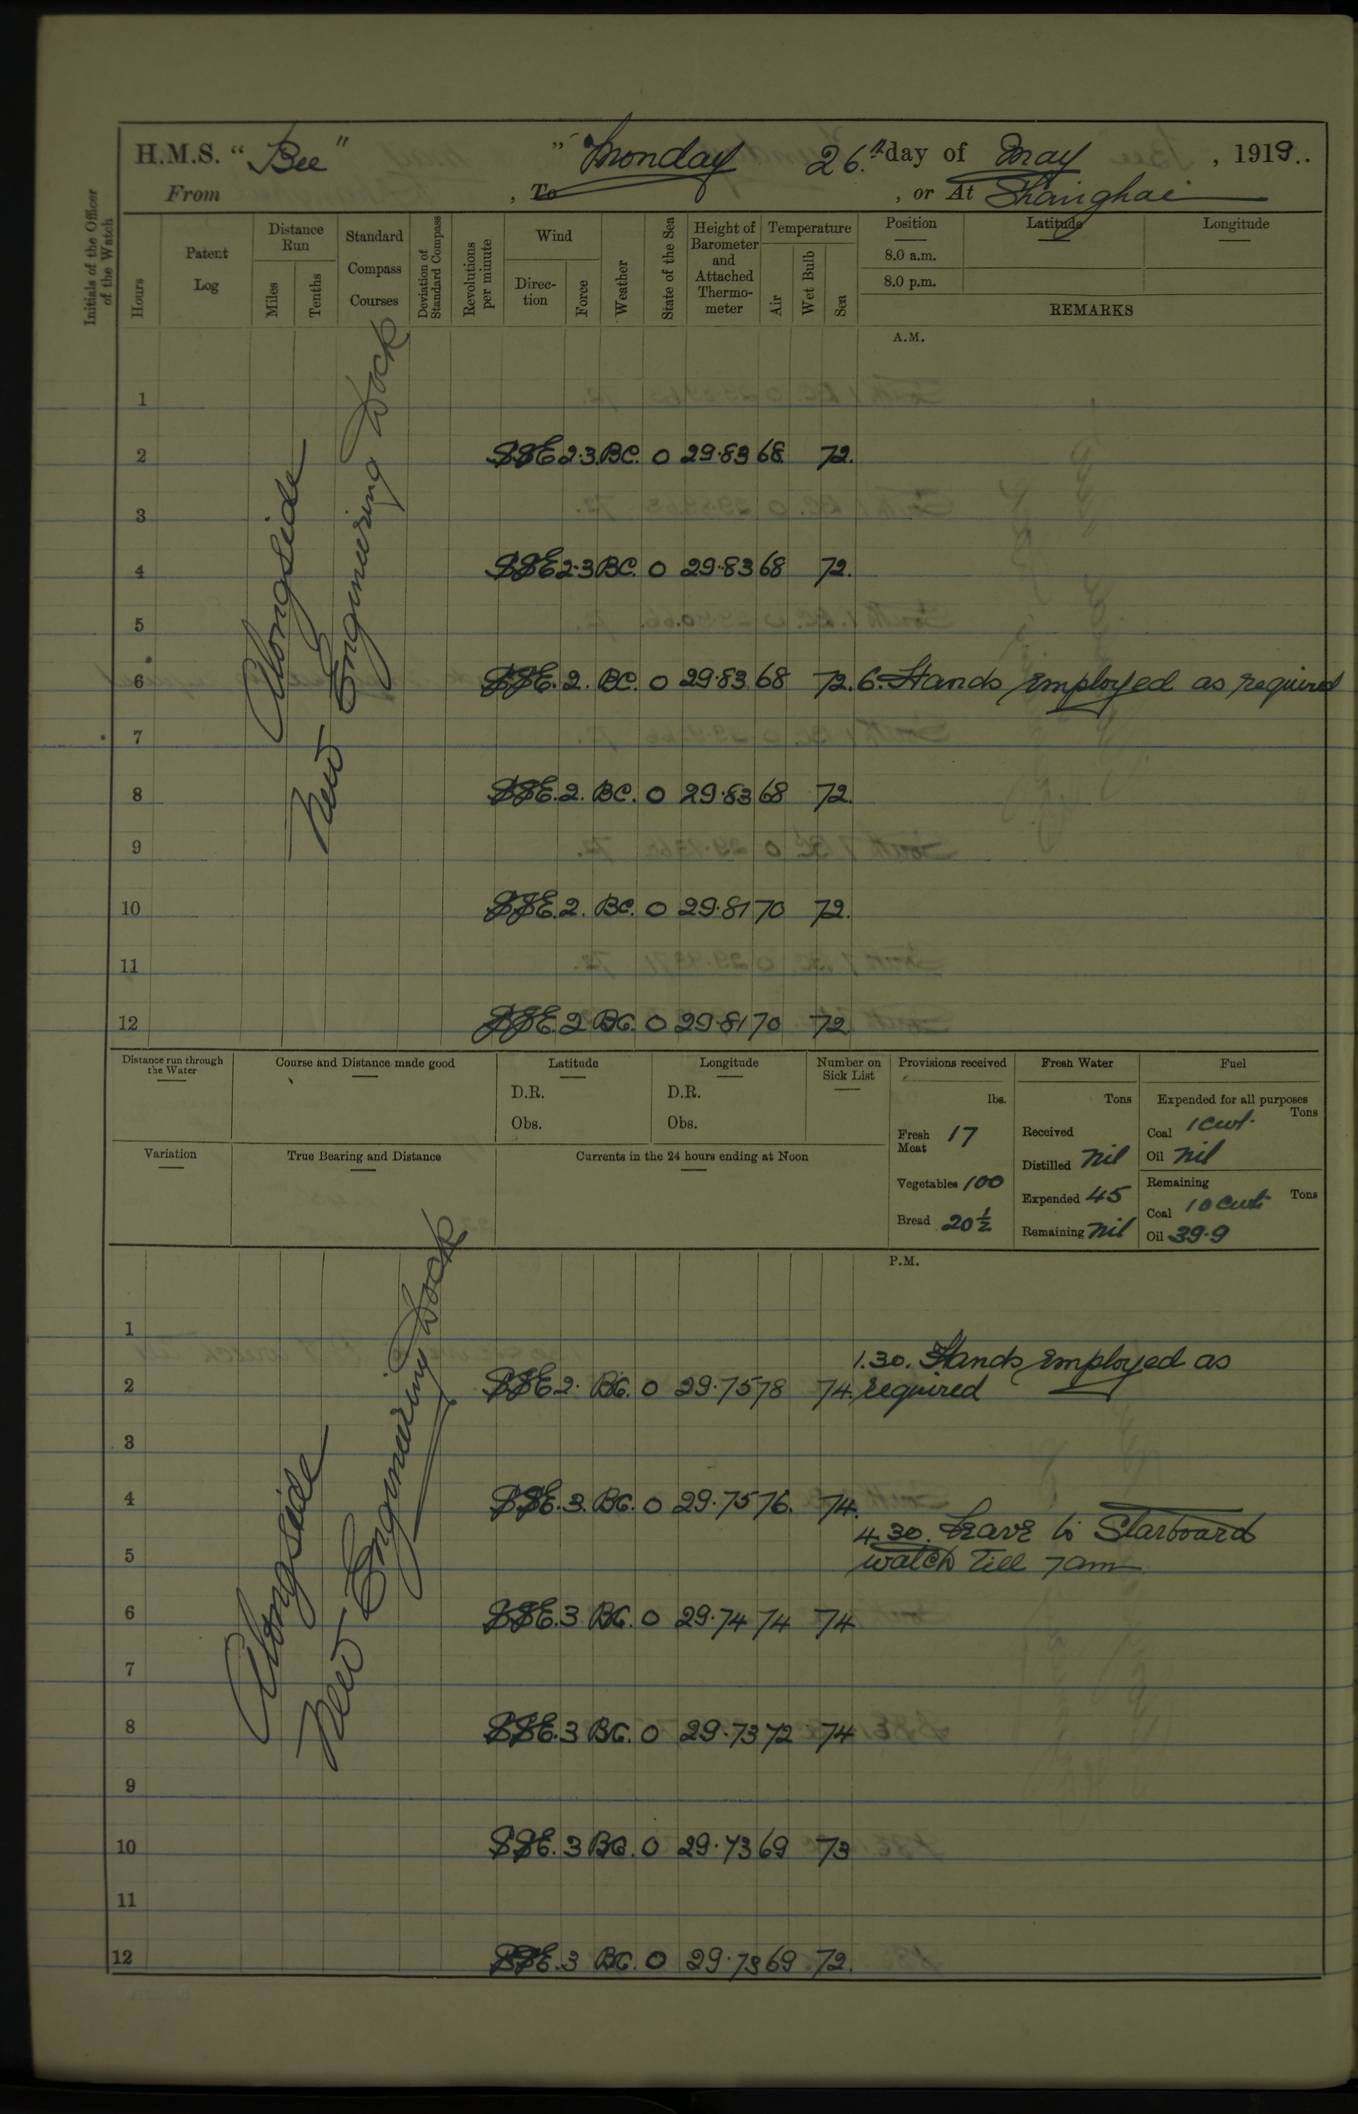 H.M.S. “Bee” ” Monday 26th day of May, 1919..
From , To , or At Shanghai
Initials of the Officer of the Watch
Hours
Patent Log
Distance Run
Miles
Tenths
Standard Compass Courses
Deviation of Standard Compass
Revolutions per minute
Wind
Direction
Force
Weather
State of the Sea
Height of Barometer and Attached Thermometer
Temperature
Air
Wet Bulb
Sea
Position
Latitude
Longitude
8.0 a.m.
8.0 p.m.
REMARKS
A.M.
Alongside
New Engineering Dock
1
2 SSE 2.3. BC. 0 29.83 68 72.
3
4 SSE 2.3 BC. 0 29.83 68 72.
5
6 SSE. 2. BC. 0 29.83 68 72. 6. Hands employed as required
7
8 SSE. 2. BC. 0 29.83 68 72.
9
10 SSE. 2. BC. 0 29.81 70 72.
11
12 SSE. 2 BC. 0 29.81 70 72
Distance run through the Water
Course and Distance made good
Latitude
D.R.
Obs.
Longitude
D.R.
Obs.
Number on Sick List
Provisions received
lbs.
Fresh Meat 17
Vegetables 100
Bread 20½
Fresh Water
Tons
Received
Distilled Nil
Expended 45
Remaining Nil
Fuel
Expended for all purposes
Tons
Coal 1 cwt.
Oil Nil
Remaining
Tons
Coal 10 cwt.
Oil 39.9
Variation
True Bearing and Distance
Currents in the 24 hours ending at Noon
P.M.
Alongside
New Engineering Dock
1
1.30. Hands employed as
2 SSE 2. BC. 0 29.75 78 74. required
3
4 SSE. 3. BC. 0 29.75 76. 74.
4.30. Leave to Starboard
5 watch till 7am
6 SSE. 3 BC. 0 29.74 74 74
7
8 SSE. 3 BC. 0 29.73 72 74
9
10 SSE. 3 BC. 0 29.73 69 73
11
12 SSE. 3 BC. 0 29.73 69 72.